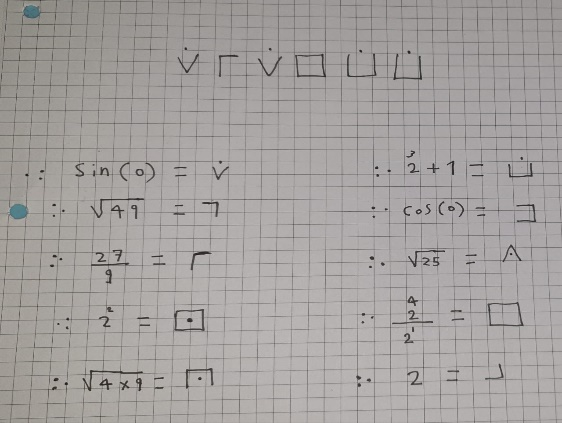 V̇ ┌ V̇ □ ⨃ ⨃
∴ sin(0) = V̇
∴ √49 = ┐
∴ 27/9 = ┌
∴ 2² = ⊡
∴ √4×9 = ⩀
∴ 2³+1 = ⨃
∴ cos(0) = ⊐
∴ √25 = ⟑
∴ 2⁴/2¹ = □
∴ 2 = ┘